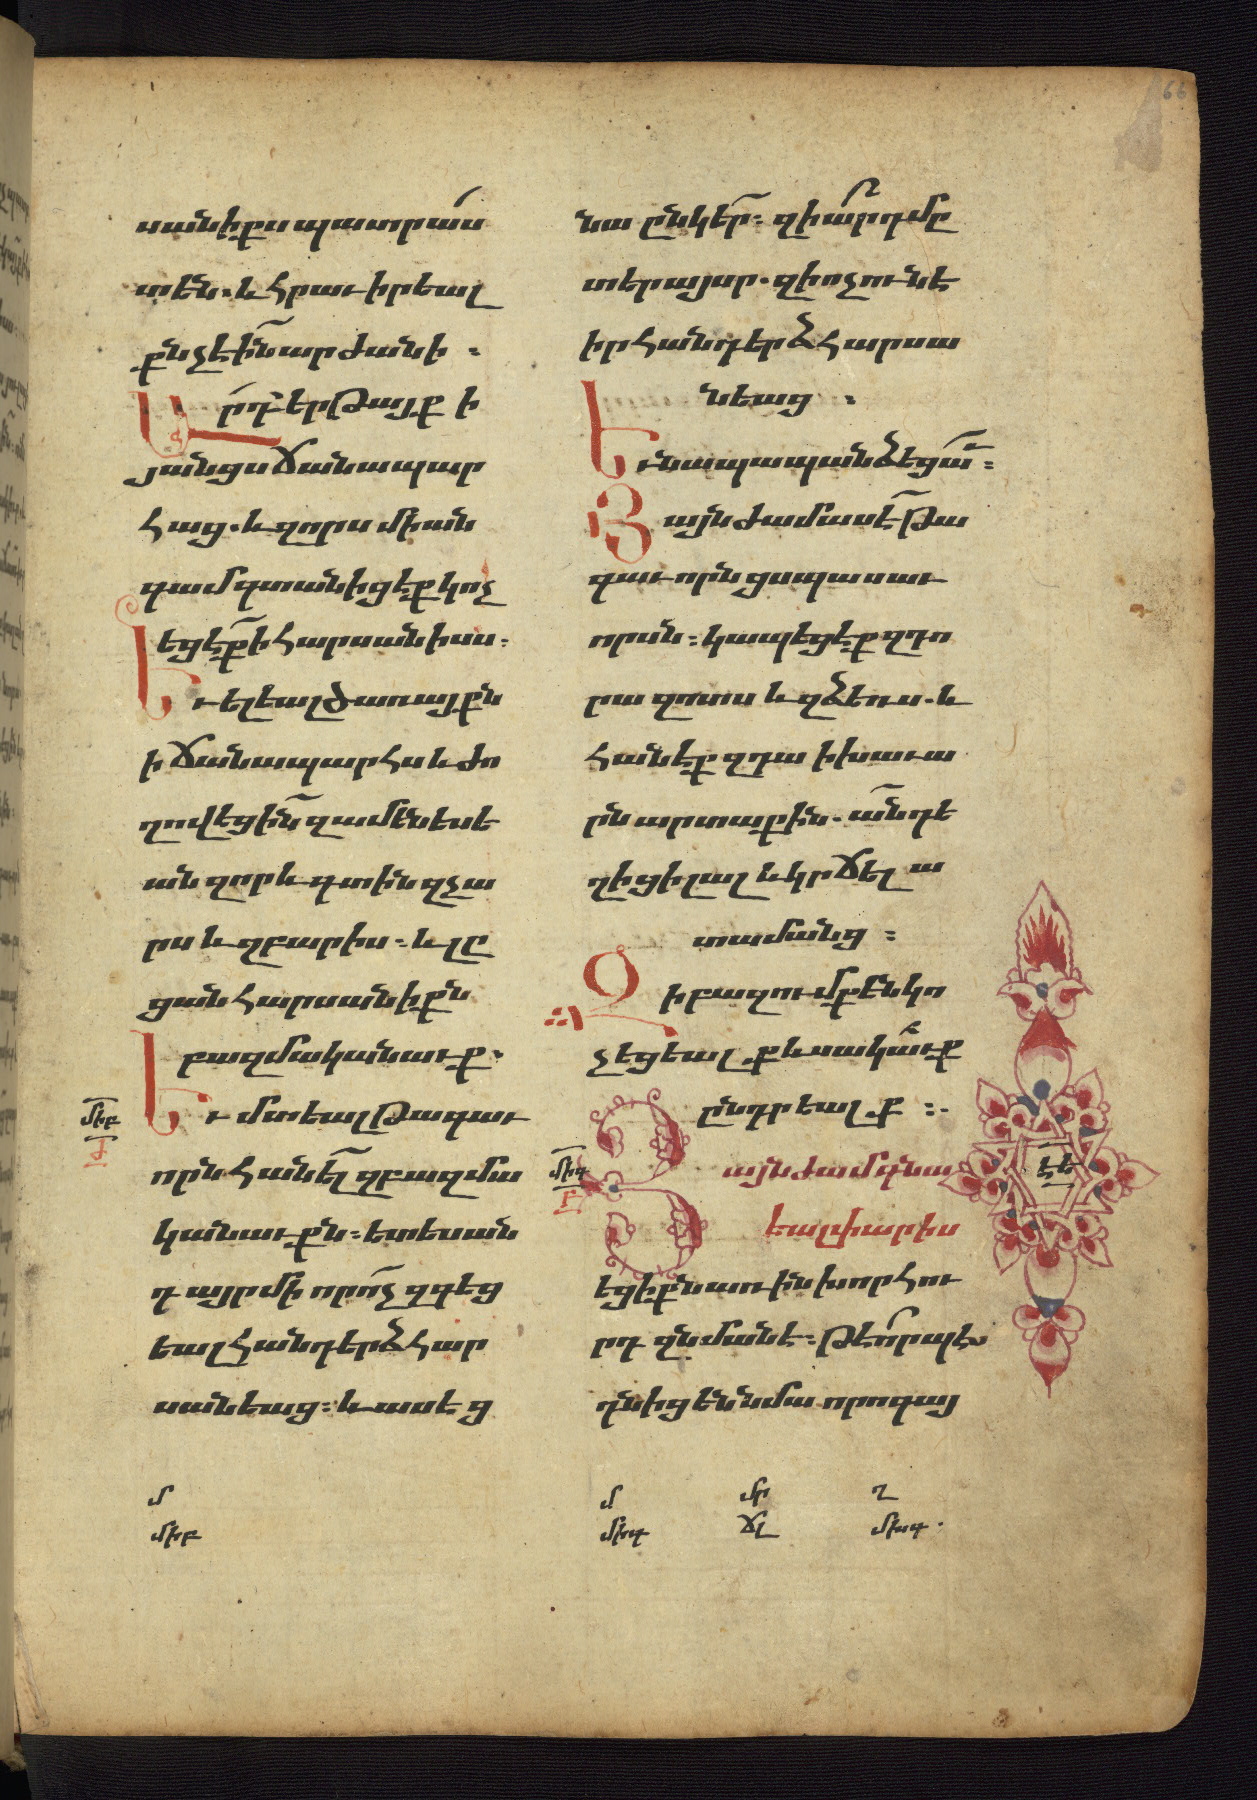 66
սանիքս պատրաս
տեն. և հրաւիրեալ
քն չէին արժանի :
Արդ երթայք ի
յանցս ճանապար
հաց. և զորս միան
գամ գտանիցէք կոչ
եցէք ի հարսանիսս :
Եւ ելեալ ծառայքն
ի ճանապարհս և ժո
ղովեցին զամենեսե
ան զոր և գտին զչա
րս և զբարիս : և լը
ցան հարսանիքն
բազմականաւք.
Եւ մտեալ թագաւ
որն հանել զբազմա
կանաւքն : ետես ան
դ այր մի որոչ զգեց
եալ հանդերձ հար
սանեաց : և ասե ց
նա ընկեր : զիարդ մը
տեր այսր. զի ոչ ունե
իր հանդերձ հարսա
նեաց :
Եւ նա պապանձեցաւ :
Յայնժամ ասէ թա
գաւորն ցսպասաւ
որսն : կապեցէք զդո
րա զոտս և զձեռս. և
հանէք զդա ի խաւա
րն արտաքին. անդ ե
ղիցի լալ և կրճել ա
տամանց :
Զի բազումք են կո
չեցեալք և սակաւք
ընդրեալք :.
Յայնժամ գնա
եալ փարիս
եցիքն առին խորհու
րդ զնմանե : թե որպէս
դնիցեն նմա որոգայ
միբ
միգ
բ
էե
մ
միբ
մ
մր
ղ
միգ
ճլ
միգ.